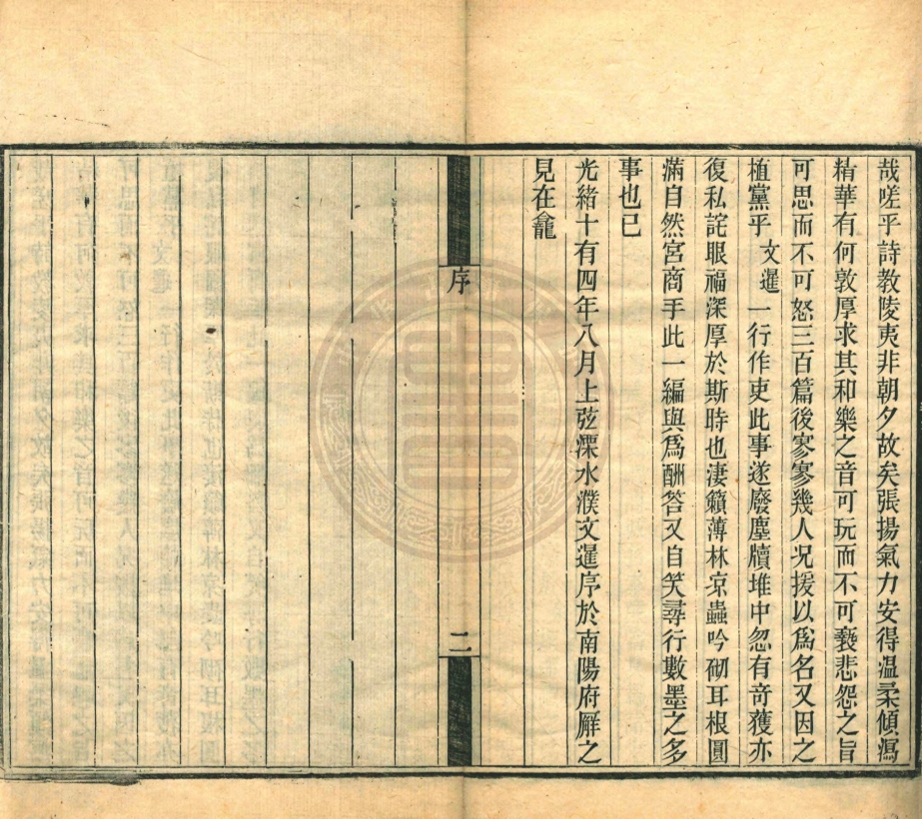 哉嗟乎詩教陵夷非朝夕故矣張揚氣力安得温柔傾瀉
精華有何敦厚求其和樂之音可玩而不可褻悲怨之旨
可思而不可怒三百篇後寥寥幾人况援以爲名又因之
植黨乎文暹一行作吏此事遂廢塵牘堆中忽有竒獲亦
復私詫眼福深厚於斯時也淒籟薄林凉蟲吟砌耳根圓
滿自然宮商手此一編與爲酬答又自笑尋行數墨之多
事也已
光緒十有四年八月上弦溧水濮文暹序於南陽府廨之
見在龕
序
二